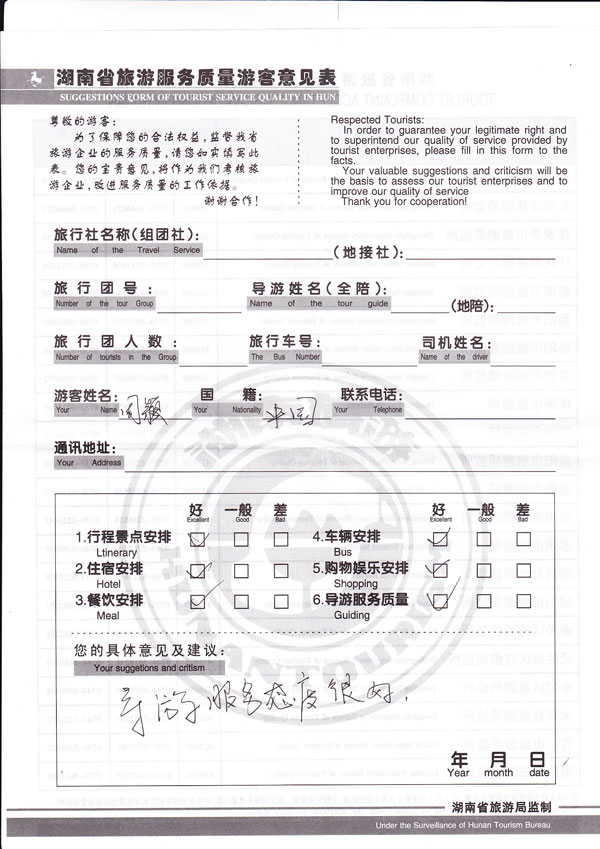 湖南省旅游服务质量游客意见表
SUGGESTIONS FORM OF TOURIST SERVICE QUALITY IN HUN
尊敬的游客：
为了保障您的合法权益，监督我省
旅游企业的服务质量，请您如实填写此
表。您的宝贵意见，将作为我们考核旅
游企业，改进服务质量的工作依据。
谢谢合作！
Respected Tourists:
In order to guarantee your legitimate right and
to superintend our quality of service provided by
tourist enterprises, please fill in this form to the
facts.
Your valuable suggestions and criticism will be
the basis to assess our tourist enterprises and to
improve our quality of service
Thank you for cooperation!
旅行社名称(组团社)： (地接社)：
Name of the Travel Service
旅行团号： 导游姓名(全陪)： (地陪)：
Number of the tour Group Name of the tour guide
旅行团人数： 旅行车号： 司机姓名：
Number of tourists in the Group The Bus Number Name of the driver
游客姓名： 国籍： 中国 联系电话：
Your Name Your Nationality Your Telephone
通讯地址：
Your Address
好 一般 差 好 一般 差
Excellent Good Bad Excellent Good Bad
1.行程景点安排 4.车辆安排
Ltinerary Bus
2.住宿安排 5.购物娱乐安排
Hotel Shopping
3.餐饮安排 6.导游服务质量
Meal Guiding
您的具体意见及建议：
Your suggetions and critism
导游服务态度很好.
年 月 日
Year month date
湖南省旅游局监制
Under the Surveillance of Hunan Tourism Bureau